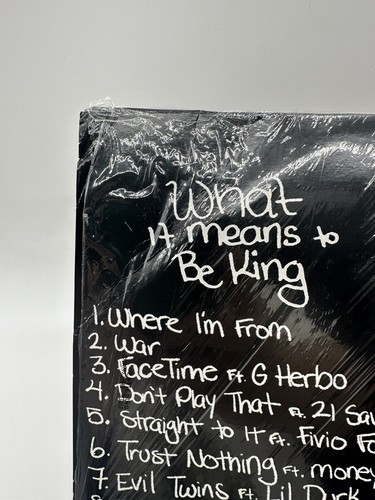 What
it means to
Be King
1. Where I'm From
2. War
3. FaceTime Ft. G Herbo
4. Don't Play That Ft. 21 Sav
5. Straight to It Ft. Fivio Fo
6. Trust Nothing Ft. money
7. Evil Twins Ft. Lil Durk